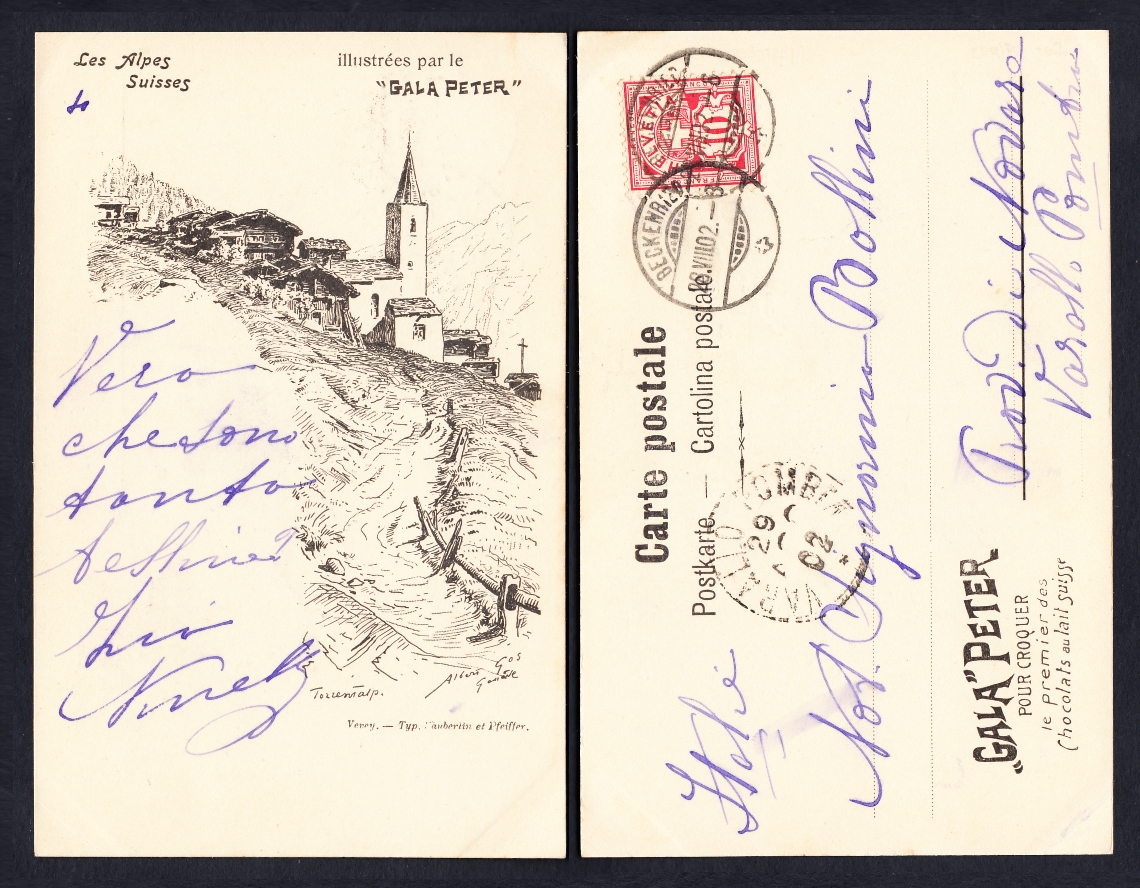 Les Alpes
Suisses
illustrées par le
"GALA PETER"
Vero
che sono
tanto
belline?
Torrentalp.
Albert Gos
Genève
Vevey. — Typ. Säuberlin et Pfeiffer.
Carte postale
Postkarte. — Cartolina postale.
HELVETIA
10
BECKENRIED
28.VIII.02.–8
VARALLO POMBIA
29
02
Italie
Not. Signorino Bollini
Prov. di Novara
Varallo Pombia
"GALA PETER"
POUR CROQUER
le Premier des
Chocolats au lait Suisse